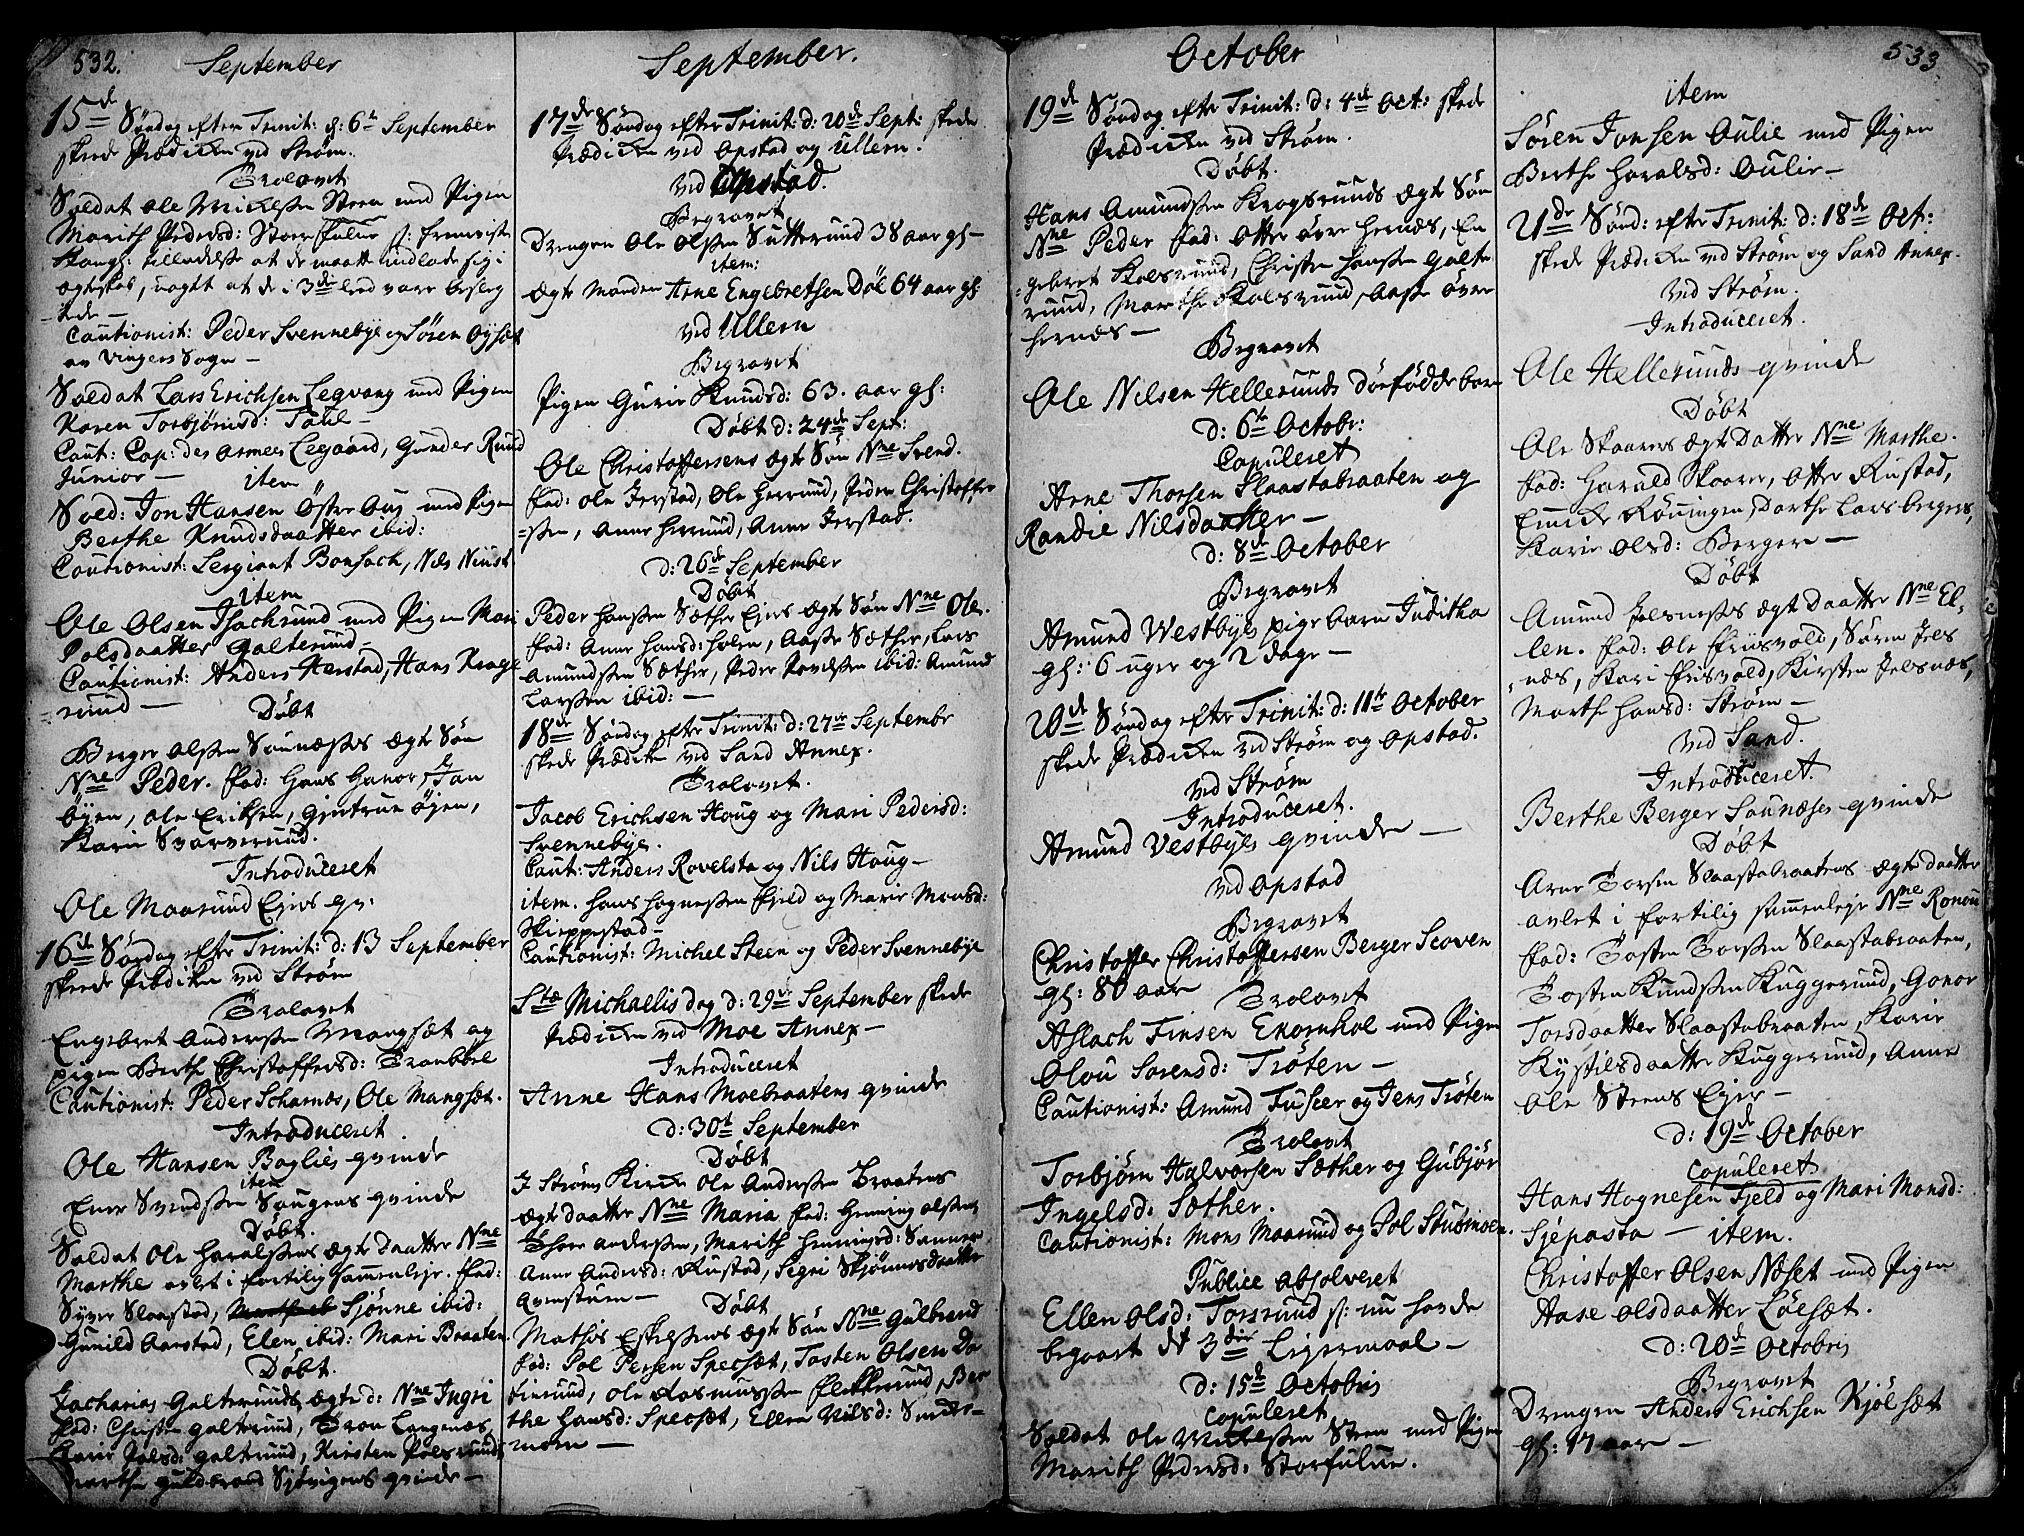 532. September
15de Søndag efter Trinit: d: 6te September
skede Prædiken ved Strøm.
Trolovet
Soldat Ole Michelsen Steen med Pigen
Marith Pedersd: Storefulue
Kongl: tilladelse at de maatte indlade sig i
ægteskab, uagtet at de i 3die led vare beslæg
-tede -
Cautionist: Peder Svennebye og Søren Øysæt
av Vingers Sogn -
Soldat Lars Erichsen Legvang med Pigen
Karen Torbjørnsd: -
Caut: Cap: des armes Legaard, Gunder Ruud
Junior - item
Sold: Jon Hansen Østre Aug med Pigen
Berthe Knudsdaatter ibid:
Cautionist: Sergiant Bonsach, Nels
item
Ole Olsen med Pigen Mari
Polsdaatter Galterud -
Cautionist: Anders Herstad, Hans Krogs
-rud -
Døbt
Berger Olsen Saunæsses ægte Søn
Nne Peder. fad: Hans Gonor, Jan
Øyen, Ole Eriksen, Gjertrue Øyen,
Karie Svarverud.
Introduceret
Ole Maarud Eyers qv:
16de Søndag efter Trinit: d: 13 September
skede Prædiken ved Strøm
Trolovet
Engebret Andersen Mangsæt og
pigen Berthe Christoffersd: Tranbøl
Cautionist: Peder Scharnæs, Ole Mangsæt.
Introduceret
Ole Hansen Baglies qvinde
item
Ener Svendsen Saugens qvinde
Døbt.
Soldat Ole Haralsens ægte Daatter Nne
Marthe avlet i fortilig sammenleje. fad:
Syver Slaastad, Sjønne ibid:
Gunild Aarstad, Elen ibid: Mari Braaten.
Døbt.
Zacharias Galteruds ægte d: Nne Ingri
fad: Christen Galterud, Tron Langenæs,
Karie Polsd: Galterud, Kirsten Polsrud,
Marthe Guldbrand Sjøvigens qvinde -
September.
17de Søndag efter Trinit: d: 20de Sept: skede
Prædiken ved Opstad og Ullern.
ved Opstad.
Begravet
Drengen Ole Olsen Sutterud 38 aar gl -
item:
Ægte Manden Arne Engebretsen Døl 64 aar gl:
ved Ullern
Begravet
Pigen Gurie Knudsd: 63. aar gl:
Døbt d: 24de Sept:
Ole Christoffersens ægte Søn Nne Svend.
fad: Ole Jerstad, Ole Herrud, Peder Christoffer
=sen, Anne Herrud, Anne Jerstad.
d: 26de September
Døbt
Peder Hansen Sæther Eyers ægte Søn Nne Ole.
fad: Anne Hansd: Holen, Aasse Sæther, Lars
Amundsen Sæther, Peder ibid: Amund
Larsen ibid: -
18de Søndag efter Trinit: d: 27de Septembr
skede Prædiken ved Sand Annex.
Trolovet.
Jacob Erichsen Houg og Mari Pedersd:
Svennebye.
Caut: Anders Rovelsta og Nils Houg -
item. Hans Hognessen Fjeld og Marie Monsd:
Skieppestad -
Cautionist: Michel Steen og Peder Svennebye
Stæ Michaelis dag d: 29de September skede
Prædiken ved Moe Annex -
Introduceret
Anne Hans Moebraatens qvinde
d: 30te September
Døbt
I Strøms Kirke Ole Andersen Braatens
ægte daatter Nne Maria fad: Henning Olsen,
Thore Andersen, Marith Henningsd: Sanner
Anne Andersd: Rustad, Segni Skjønnesdaatter
Døbt
Mathis Eskelsens ægte Søn Nne Gulbrand
fad: Pol Persen Specset, Tosten Olsen Do
-fierud, Ole Rasmussen Flikkerud, Ber
the Hansd: Specset, Ellen Nilsd: Sunder-
moen -
October
19de Søndag efter Trinit: d: 4de Oct: skede
Prædiken ved Strøm.
Døbt.
Hans Amundsen Krogsruds ægte Søn
Nne Peder fad: Otter øvre Hernæs, En
-gebret Kolsrud, Christen Hansen Galte
rud, Marthe Kolsrud, Aasse øvre
Hernæs -
Begravet
Ole Nilsen Helleruds dødfødde barn
d: 6te Octobr:
Copuleret
Arne Thorsen Slaastabraaten og
Randie Nilsdaatter -
d: 8de October
Begravet
Amund Westbyes pige barn Juditha
gl: 6 uger og 2 dage -
20de Søndag efter Trinit: d: 11te October
skede Prædiken ved Strøm og Opstad.
ved Strøm
Introduceret.
Amund Vestbyes qvinde -
ved Opstad
Begravet
Christoffer Christoffersen Berger Scoven
gl: 80 aar
Trolovet
Aslach Finsen Ekornhol med Pigen
Olou Sorensd: Trøten -
Cautionist: Amund Fuscer og Jens Trøten
Trolovet
Torbjørn Halvorsen Sæther og Gubjør
Ingelsd: Sæther.
Cautionist: Mons Maarud og Pol Stubmoen.
Publice absolveret
Ellen Olsd: Torsrud nu havde
begaaet det 3die Leyermaal -
d: 15de Octobris
Copuleret
Soldat Ole Mickelsen Steen med Pigen
Marith Pedersd: Storfulue.
533.
item
Søren Jonsen Oulie med Pigen
Berthe Haralsd: Oulie -
21de Sønd: efter Trinit: d: 18de Oct:
skede Prædiken ved Strøm og Sand Annex.
ved Strøm.
Introduceret.
Ole Helleruds qvinde
Døbt
Ole Skaarers ægte Datter Nne Marthe.
fad: Harald Skaarer, Otter Rustad,
Røningen, Dorthe Lars bergers,
Karie Olsd: Berger -
Døbt
Amund Jelsnæsses ægte Daatter Nne El-
len. fad: Ole Friisvold, Søren Jels
-næs, Kari Friisvold, Kirsten Jelsnæs,
Marthe Hansd: Strøm -
ved Sand.
Introduceret.
Berthe Berger Saunæses qvinde
Døbt
Arne Torsen Slaastabraatens ægte daatter
avlet i fortilig sammenleje Nne Ronou
fad: Tosten Torsen Slaastabraaten,
Tosten Knudsen Kuggerud, Gonor
Torsdaatter Slaastabraaten, Karie
Kystilsdaatter Kuggerud, Anne
Ole Steens Eyer -
d: 19de October
Copuleret
Hans Hognesen Fjeld og Mari Monsd:
Sjepasta - item.
Christoffer Olsen Næset med Pigen
Aase Olsdaatter Løesæt.
d: 20de Octobris
Begravet
Drengen Anders Erichsen Kjølsæt
gl: 17 aar -